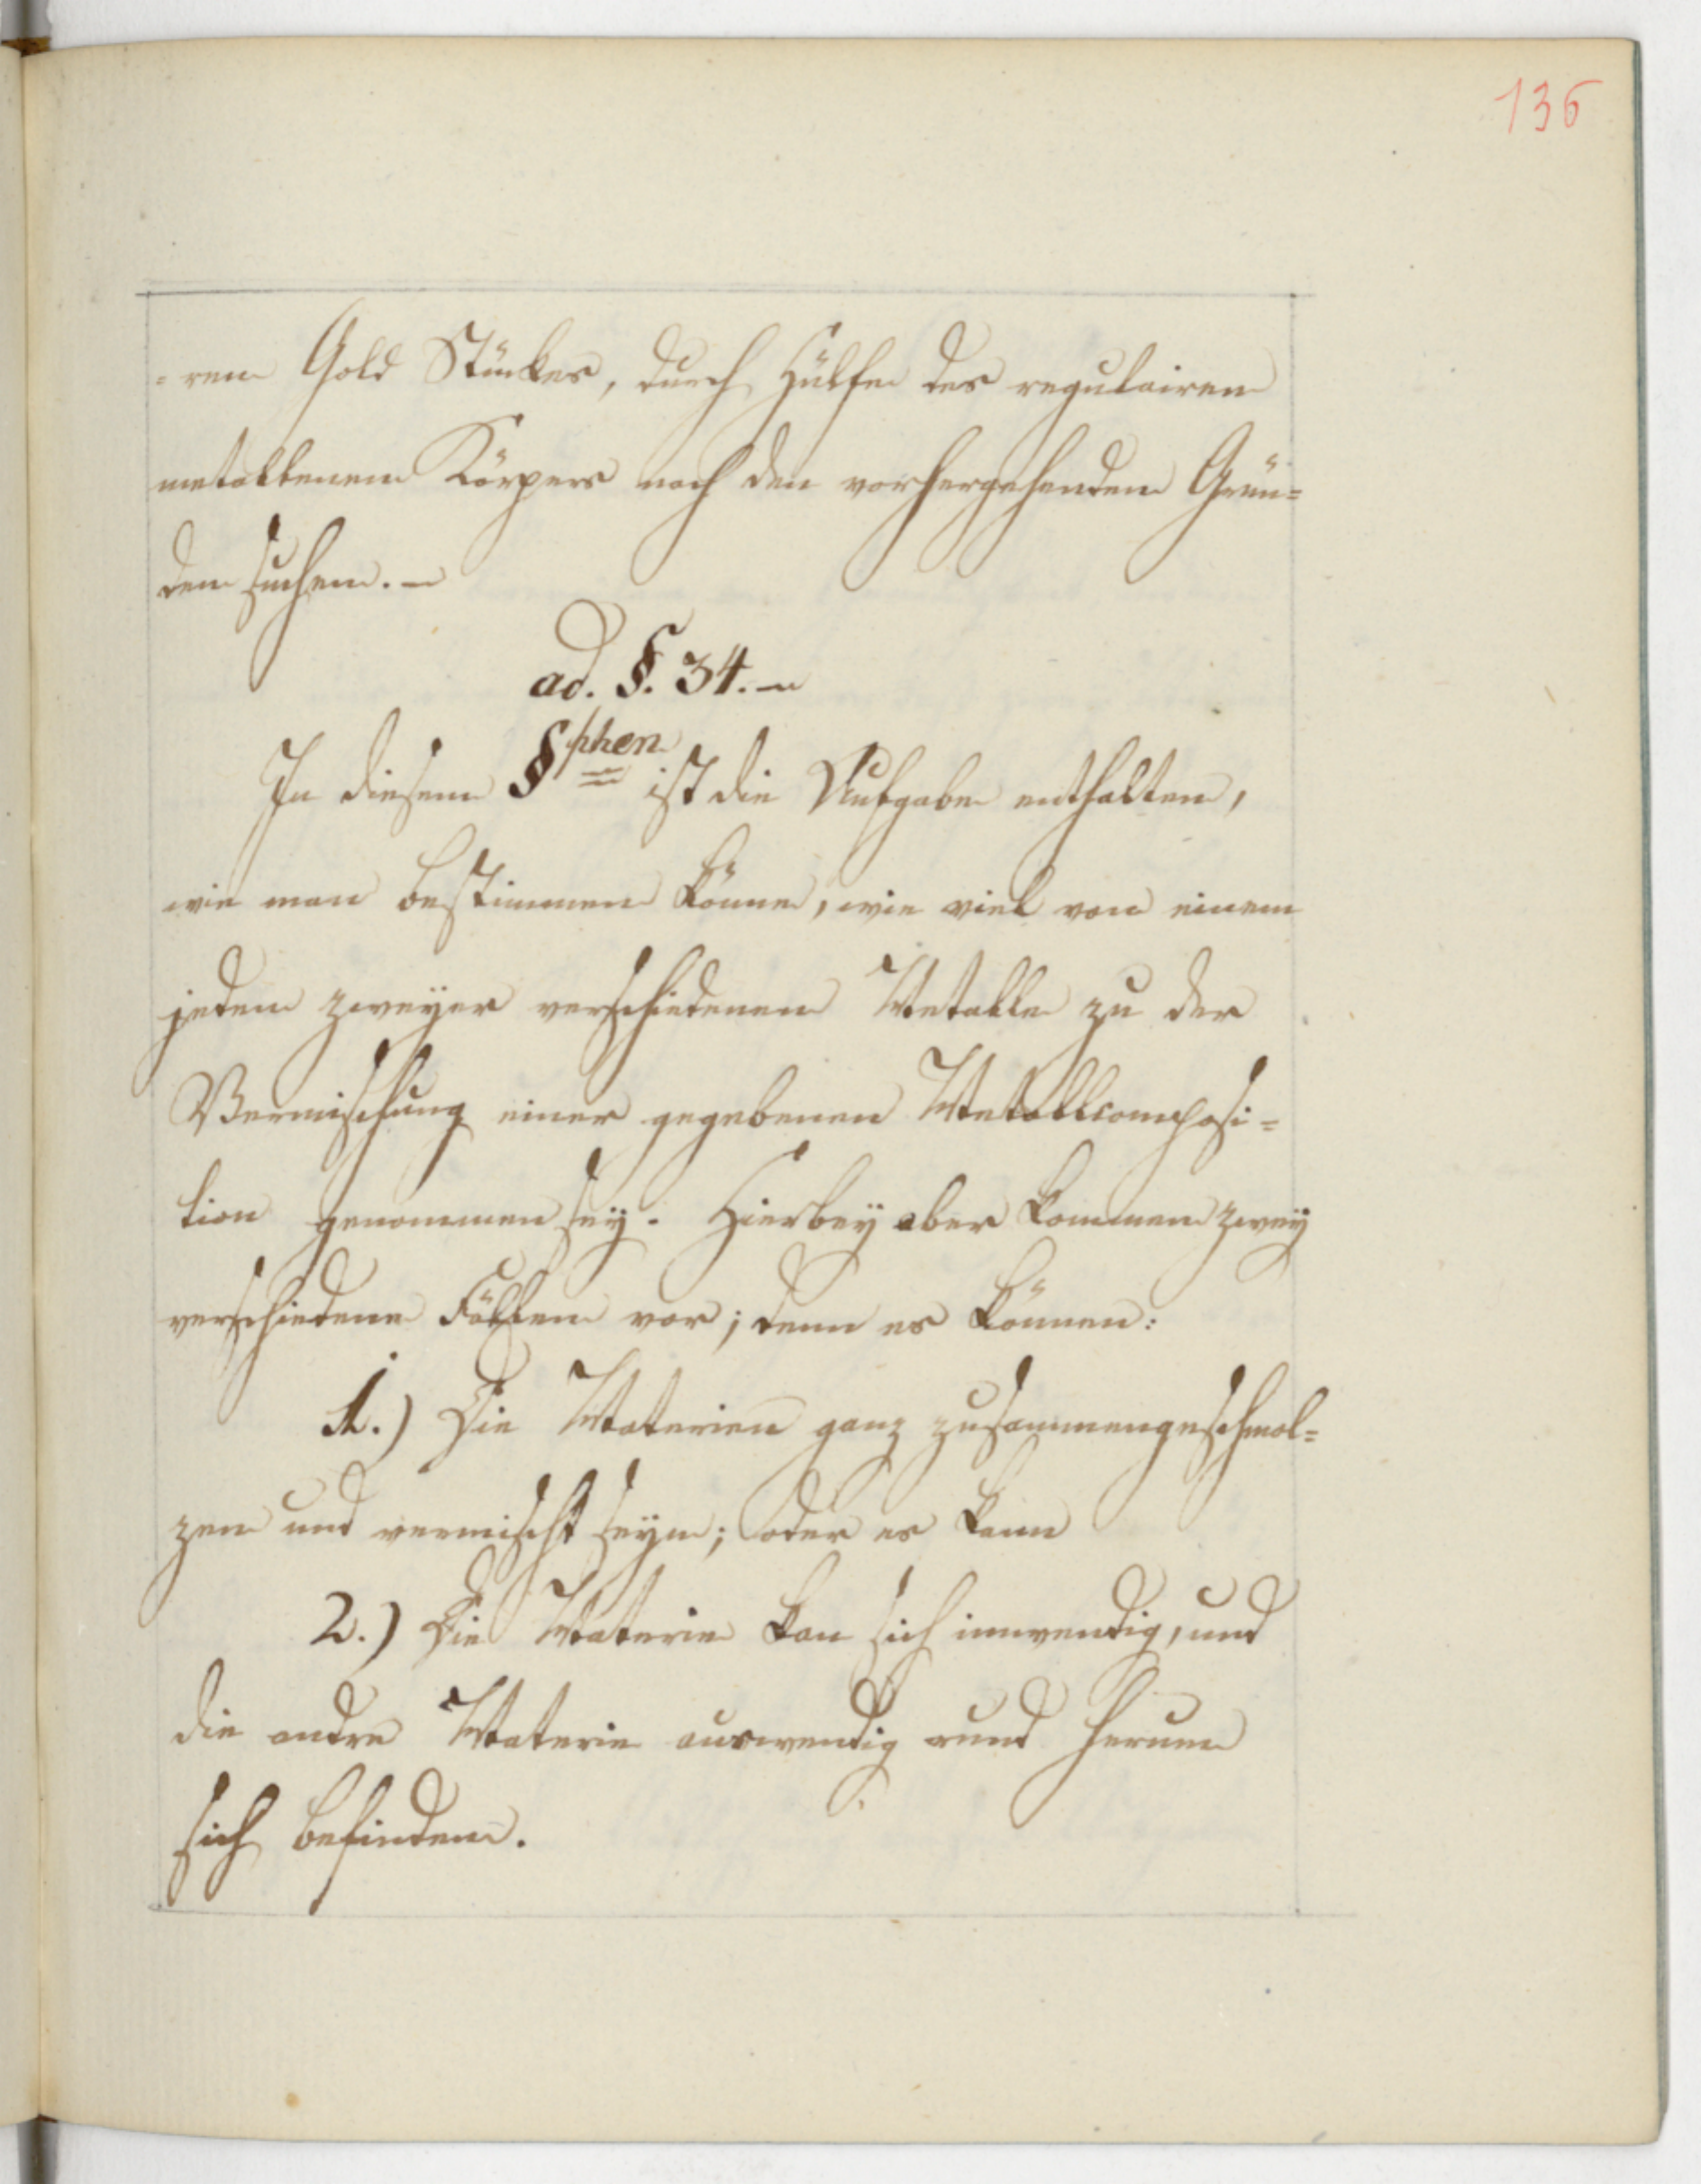 136
=ren Gold Stückes, durch Hülfe des regulairen
metallenen Körpers nach den vorhergehenden Grün=
den suchen. –
ad. §. 34. –
In diesem §phen ist die Aufgabe enthalten,
wie man bestimmen könne, wie viel von einem
jeden zweyer verschiedenen Metalle zu der
Vermischung einer gegebenen Metallcomposi=
tion genommen sey. Hierbey aber kommen zwey
verschiedene Fällen vor; denn es können:
1.) Die Materien ganz zusammengeschmol=
zen und vermischt seyn; oder es kann
2.) Die Materie kan sich innwendig, und
die andre Materie auswendig rund herum
sich befinden.